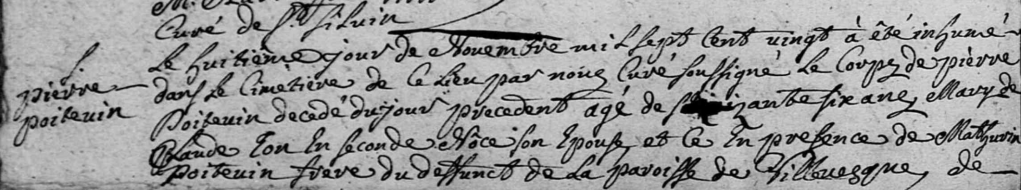 Curé de St Silvin
Le huitième jour de Novembre mil sept cent vingt à été inhumé
dans Le Cimetière de Ce Lieu par nous Curé soussigné Le Corps de pierre
pierre
Poitevin decedé du jour precedent agé de soixante six ans, Mary de
poitevin
en seconde Nôce son Epouse, et Ce En presence de Mathurin
poitevin frere du deffunct de La paroisse de de